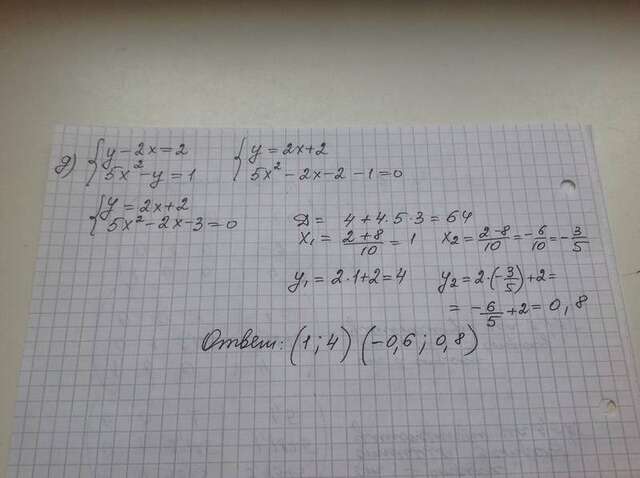 д) { y-2x=2   { y=2x+2
5x²-y=1   5x²-2x-2-1=0
{ y=2x+2
5x²-2x-3=0   Д= 4+4·5·3=64
x₁= (2+8)/10 = 1   x₂= (2-8)/10 = -6/10 = -3/5
y₁=2·1+2=4   y₂=2·(-3/5)+2=
= -6/5+2=0,8
Ответ: (1;4) (-0,6; 0,8)